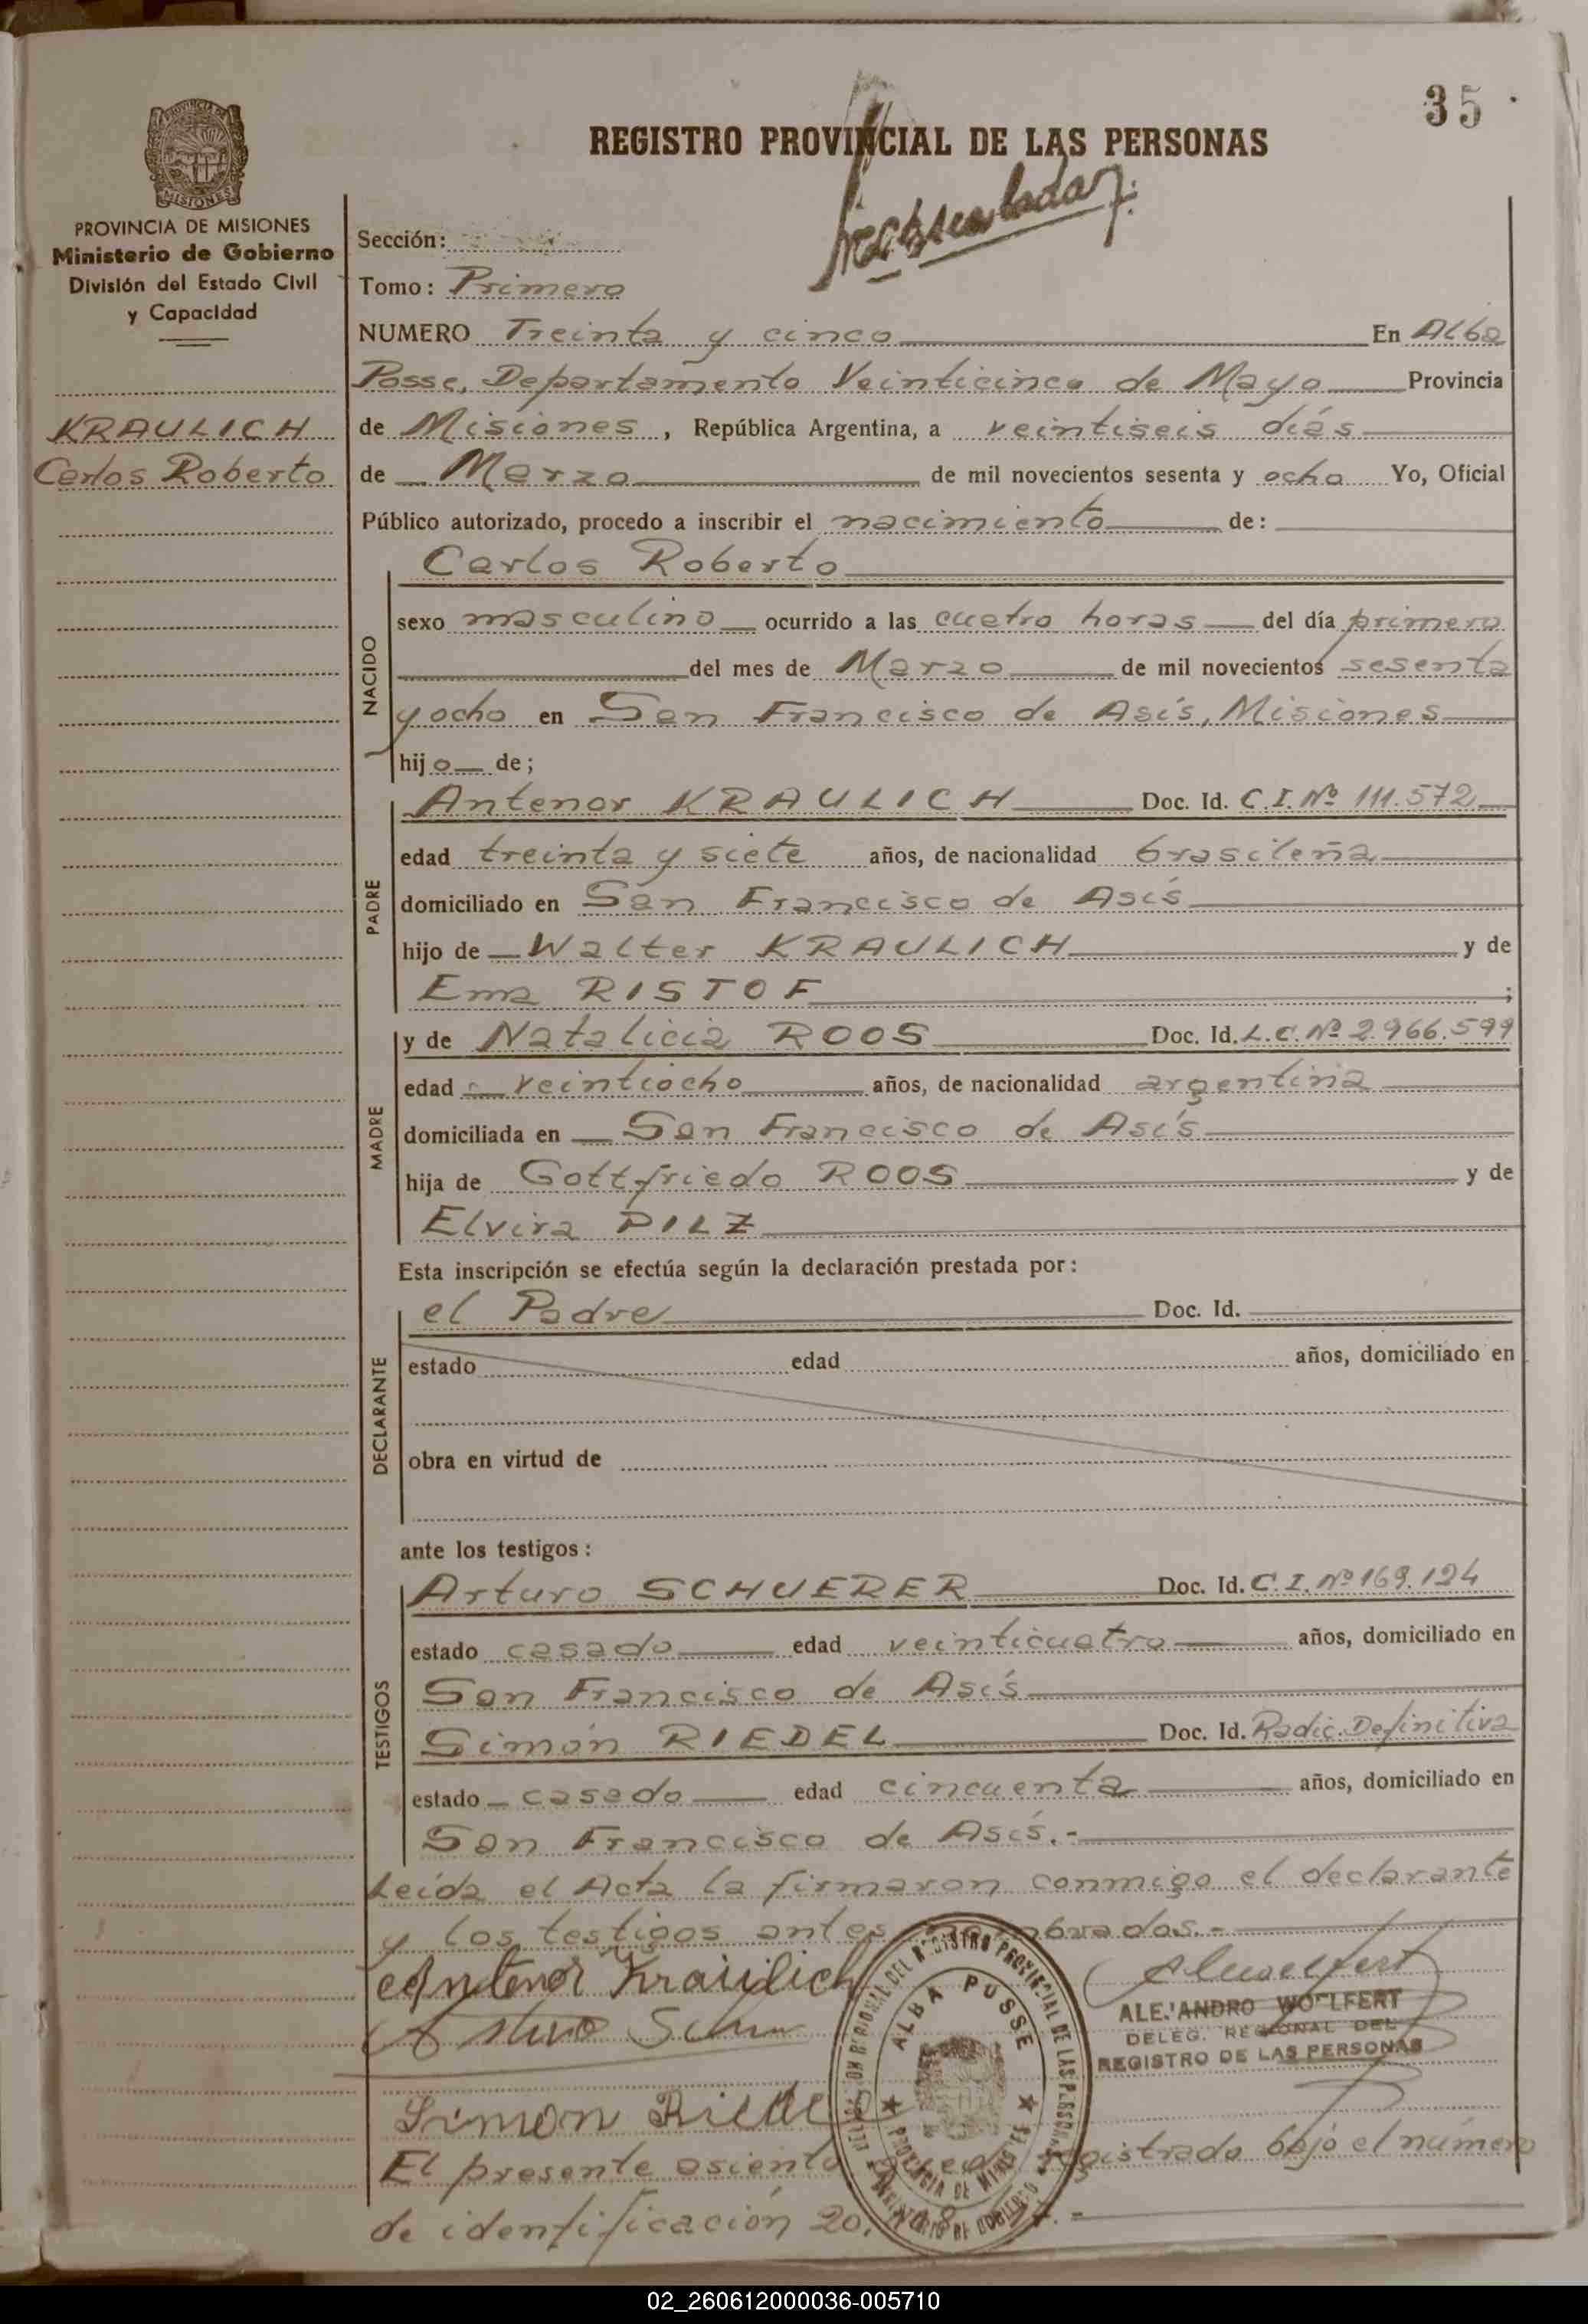 35
REGISTRO PROVINCIAL DE LAS PERSONAS
PROVINCIA DE MISIONES
Ministerio de Gobierno
División del Estado Civil
y Capacidad
KRAULICH
Carlos Roberto
Sección:
Tomo: Primero
NUMERO Treinta y cinco En Alba
Posse, Departamento Veinticinco de Mayo Provincia
de Misiones, República Argentina, a veintiseis días
de Marzo de mil novecientos sesenta y ocho Yo, Oficial
Público autorizado, procedo a inscribir el nacimiento de:
NACIDO
Carlos Roberto
sexo masculino ocurrido a las cuatro horas del día primero
del mes de Marzo de mil novecientos sesenta
y ocho en San Francisco de Asís, Misiones
hijo de;
PADRE
Antenor KRAULICH Doc. Id. C.I. Nº 111.572
edad treinta y siete años, de nacionalidad brasileña
domiciliado en San Francisco de Asís
hijo de Walter KRAULICH y de
Ema RISTOF ;
MADRE
y de Natalicia ROOS Doc. Id. L.C. Nº 2.966.599
edad veintiocho años, de nacionalidad argentina
domiciliada en San Francisco de Asís
hija de Gottfriedo ROOS y de
Elvira PILZ
Esta inscripción se efectúa según la declaración prestada por:
DECLARANTE
el Padre Doc. Id.
estado edad años, domiciliado en
obra en virtud de
ante los testigos:
TESTIGOS
Arturo SCHUERER Doc. Id. C.I. Nº 169.124
estado casado edad veinticuatro años, domiciliado en
San Francisco de Asís
Simón RIEDEL Doc. Id. Radic. Definitiva
estado casado edad cincuenta años, domiciliado en
San Francisco de Asís.-
Leída el Acta la firmaron conmigo el declarante
y los testigos antes nombrados.-
Antenor Kraulich
ALEJANDRO WOLFERT
DELEG. REGIONAL DEL
REGISTRO DE LAS PERSONAS
ALBA POSSE
PROVINCIA DE MISIONES
Simon Riedel
El presente asiento registrado bajo el número
de identificación 20.
02_260612000036-005710